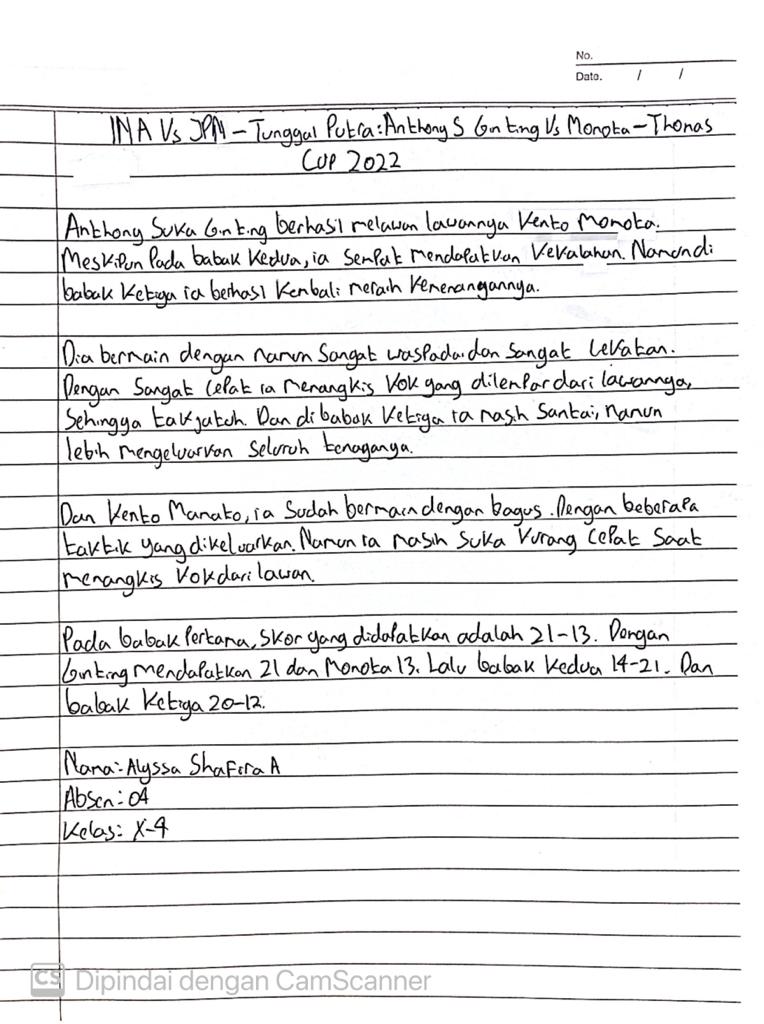 No.
Date. / /
INA Vs JPN - Tunggal Putra: Anthony S Ginting Vs Momota - Thomas
Cup 2022
Anthony Suka Ginting berhasil melawan lawannya Kento Momota.
Meskipun Pada babak kedua, ia sempat mendapatkan kekalahan. Namun di
babak ketiga ia berhasl kembali meraih kemenangannya.
Dia bermain dengan namun Sangat waspada dan Sangat Cekatan.
Dengan Sangat cepat ia menangkis kok yang dilempar dari lawannya,
Sehingga tak jatuh. Dan di babak ketiga ia masih Santai, namun
lebih mengeluarkan Seluruh tenaganya.
Dan Kento Manato, ia Sudah bermain dengan bagus. Dengan beberapa
taktik yang dikeluarkan. Namun ia masih Suka kurang cepat Saat
menangkis kok dari lawan.
Pada babak Pertama, Skor yang didapatkan adalah 21-13. Dengan
Ginting mendapatkan 21 dan Momota 13. Lalu babak kedua 14-21. Dan
babak ketiga 20-12.
Nama: Alyssa Shafira A
Absen: 04
Kelas: X-4
CS Dipindai dengan CamScanner